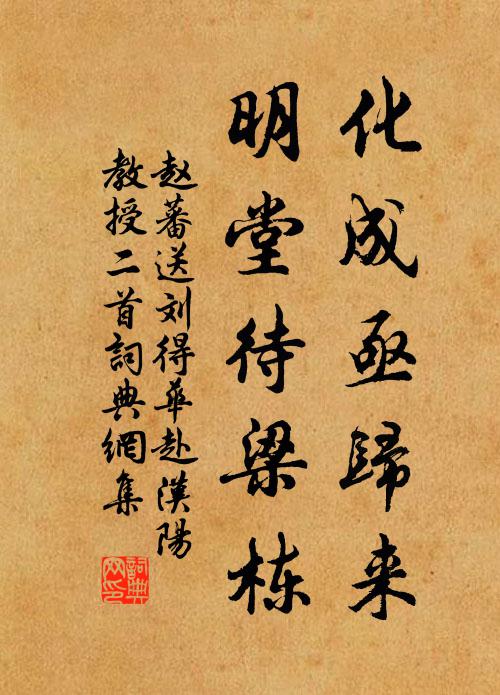 化成亟歸来
明堂待梁栋
赵蕃送刘得華赴漢陽
教授二首詞典網集
詞典
网印